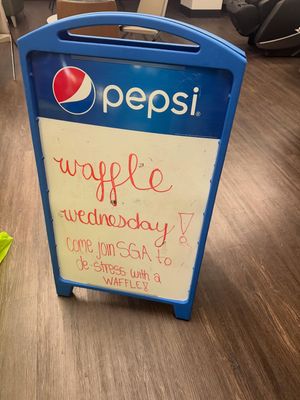 pepsi
waffle
wednesday!
come join SGA to
de-stress with a
WAFFLE!